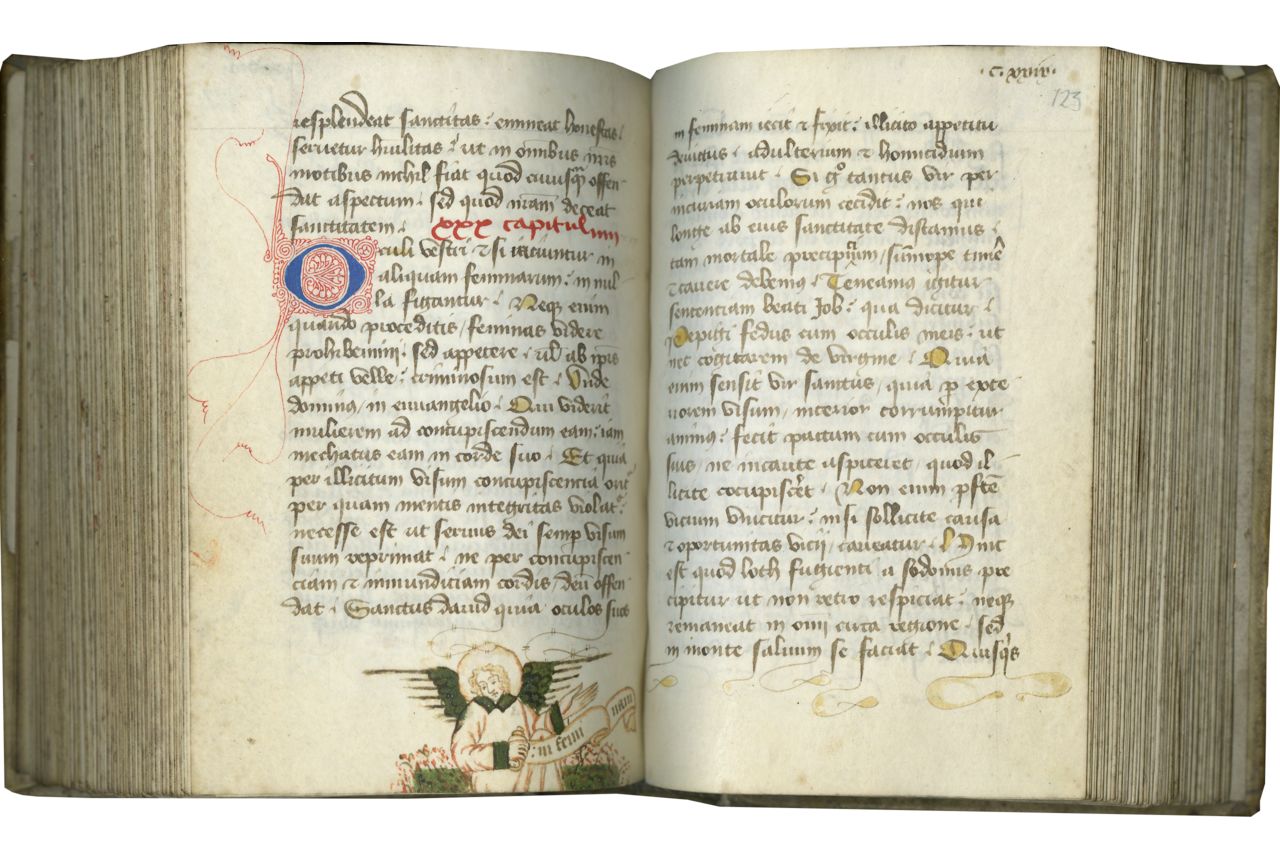 resplendeat sanctitas : emineat honestas :
seruetur hůilitas : ut in omnibus nr̄is
motibus nichil fiat quod cuiusq̄ȝ offen
dat aspectum . sed quod nr̄am deceat
sanctitatem . xxx capitulum
Oculi vestri et si iaciuntur in
aliquam feminarum : in nul
la figantur . Neqȝ enim
quando proceditis / feminas videre
prohibemini . sed appetere . ul̄ ab ip̄is
appeti velle : criminosum est . Vnde
dominus / in euuangelio . Qui viderit
mulierem ad concupiscendum eam : iam
mechatus eam in corde suo . Et quia
per illicitum visum concupiscencia orit᷑
per quam mentis integritas violat᷑
necesse est ut seruus dei semp̲ visum
suum reprimat . ne per concupiscen
ciam et inmundiciam cordis deū offen
dat . Sanctus dauid quia oculos suos
in femi
nam
. c . xxiix .
123
in feminam iecit ⁊ fixit : illicito appetitu
deuictus . adulterium ⁊ homicidium
perpetrauit . Si gͦ tantus vir per
incuriam oculorum cecidit : nos qui
longe ab eius sanctitate distamus .
tam mortale precipitium / summope timē
⁊ cauere debemus . Teneamus igitur
sentenciam beati Job . qua dicitur .
Pepigi fedus cum occulis meis . ut
nec cogitarem de virgine . Quia
enim sensit vir sanctus / quia p̲ exte
riorem visum / interior corrumpitur
animus : fecit pactum cum occulis
suis / ne incaute aspiceret / quod il
licite cōcupisc̄et . Non enim p̄stē
vicium vincitur : nisi sollicite causa
⁊ oportunitas vicij / caueatur . Hinc
est quod loth fugienti a sodomis pre
cipitur ut non retro respiciat : neqȝ
remaneat in omī circa regione . sed
in monte saluum se faciat . Quisq̇s